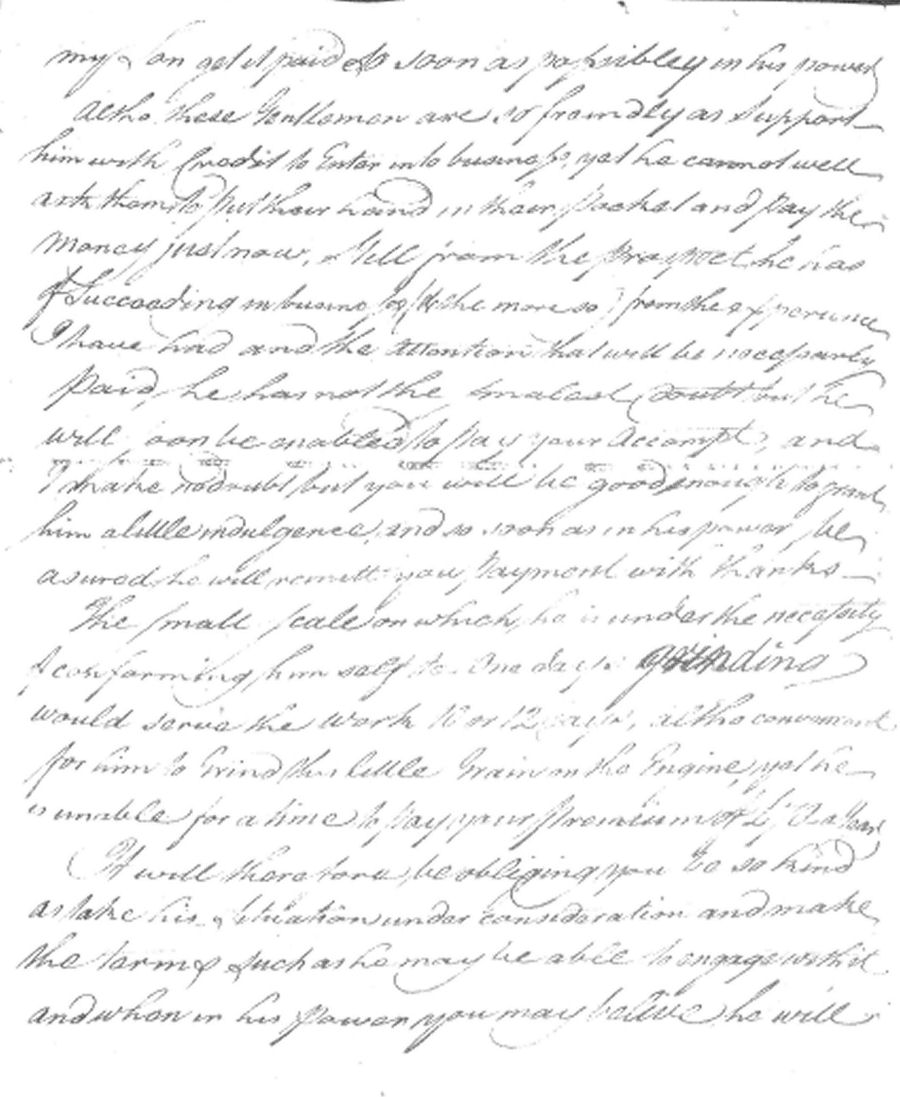 my Son get it paid so soon as possibley in his power
Altho these Gentlemen are so freindly as Support
him with Credit to Enter into business, yet he cannot well
ask them to put their hand in their Pocket and pay the
Money just now, Still from the Prospect he has
of Succeeding in business (& the more so) from the experience
I have had and the Attention that will be necessarly
Paid, he has not the smalest Doubt but he
will soon be enabled to pay your Accompt, and
I make no doubt but you will be good enough to grant
him a little indulgence, and so soon as in his power be
asured he will remitt you Payment with thanks
The small scale on which he is under the necessity
of conforming him self to One days grinding
would serve the Work 10 or 12 days, altho convenient
for him to Grind this little Grain on the Engine, yet he
is unable for a time to pay your Premium of a Year
It will therefore be obliging you be so kind
as take his Situation under consideration and make
the terms Such as he may be able to engage with it
and when in his Power you may believe he will